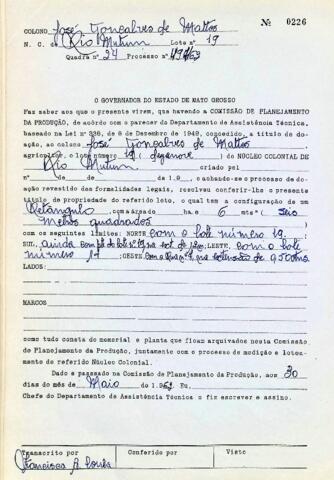 Nº 0226
COLONO José Gonçalves de Mattos
N. C. de Rio Mutum Lote nº 19
Quadra nº 24 Processo nº
O GOVERNADOR DO ESTADO DE MATO GROSSO
Faz saber aos que o presente virem, que havendo a COMISSÃO DE PLANEJAMENTO
DA PRODUÇÃO, de acôrdo com o parecer do Departamento de Assistência Técnica,
baseado na Lei nº 336, de 6 de Dezembro de 1949, concedido, a título de doa-
ção, ao colono José Gonçalves de Mattos
agricultor, o lote número 19 (dezenove) do NÚCLEO COLONIAL DE
Rio Mutum criado pel
nº de de de 19 e achando-se o processo de do-
ação revestido das formalidades legais, resolveu conferir-lhe o presente
título de propriedade do referido lote, o qual tem a configuração de um
Retângulo com a área de ha e 6 mts² (seis
Metros quadrados)
com os seguintes limites: NORTE com o lote número 19
SUL, ainda com LESTE, com o lote
número 17 OESTE
LADOS:
MARCOS
como tudo consta do memorial e planta que ficam arquivados nesta Comissão
de Planejamento da Produção, juntamente com o processo de medição e lotea-
mento de referido Núcleo Colonial.
Dado e passado na Comissão de Planejamento da Produção, aos 30
dias do mês de Maio de 1.96 Eu,
Chefe do Departamento de Assistência Técnica o fiz escrever e assino.
Transcrito por Conferido por Visto
Francisca